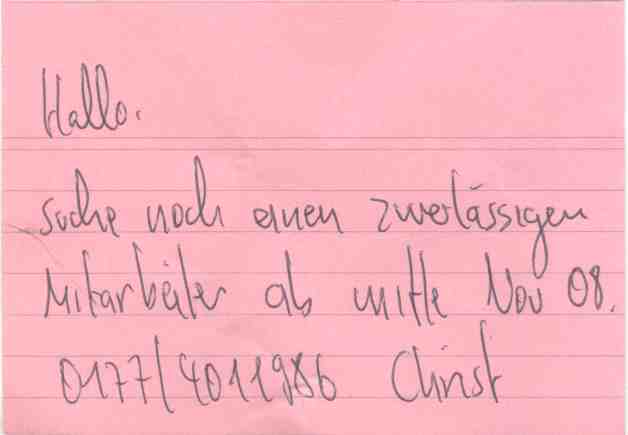 Hallo.
Suche noch einen zuverlässigen
Mitarbeiter ab mitte Nov 08.
0177/4011986 Christ